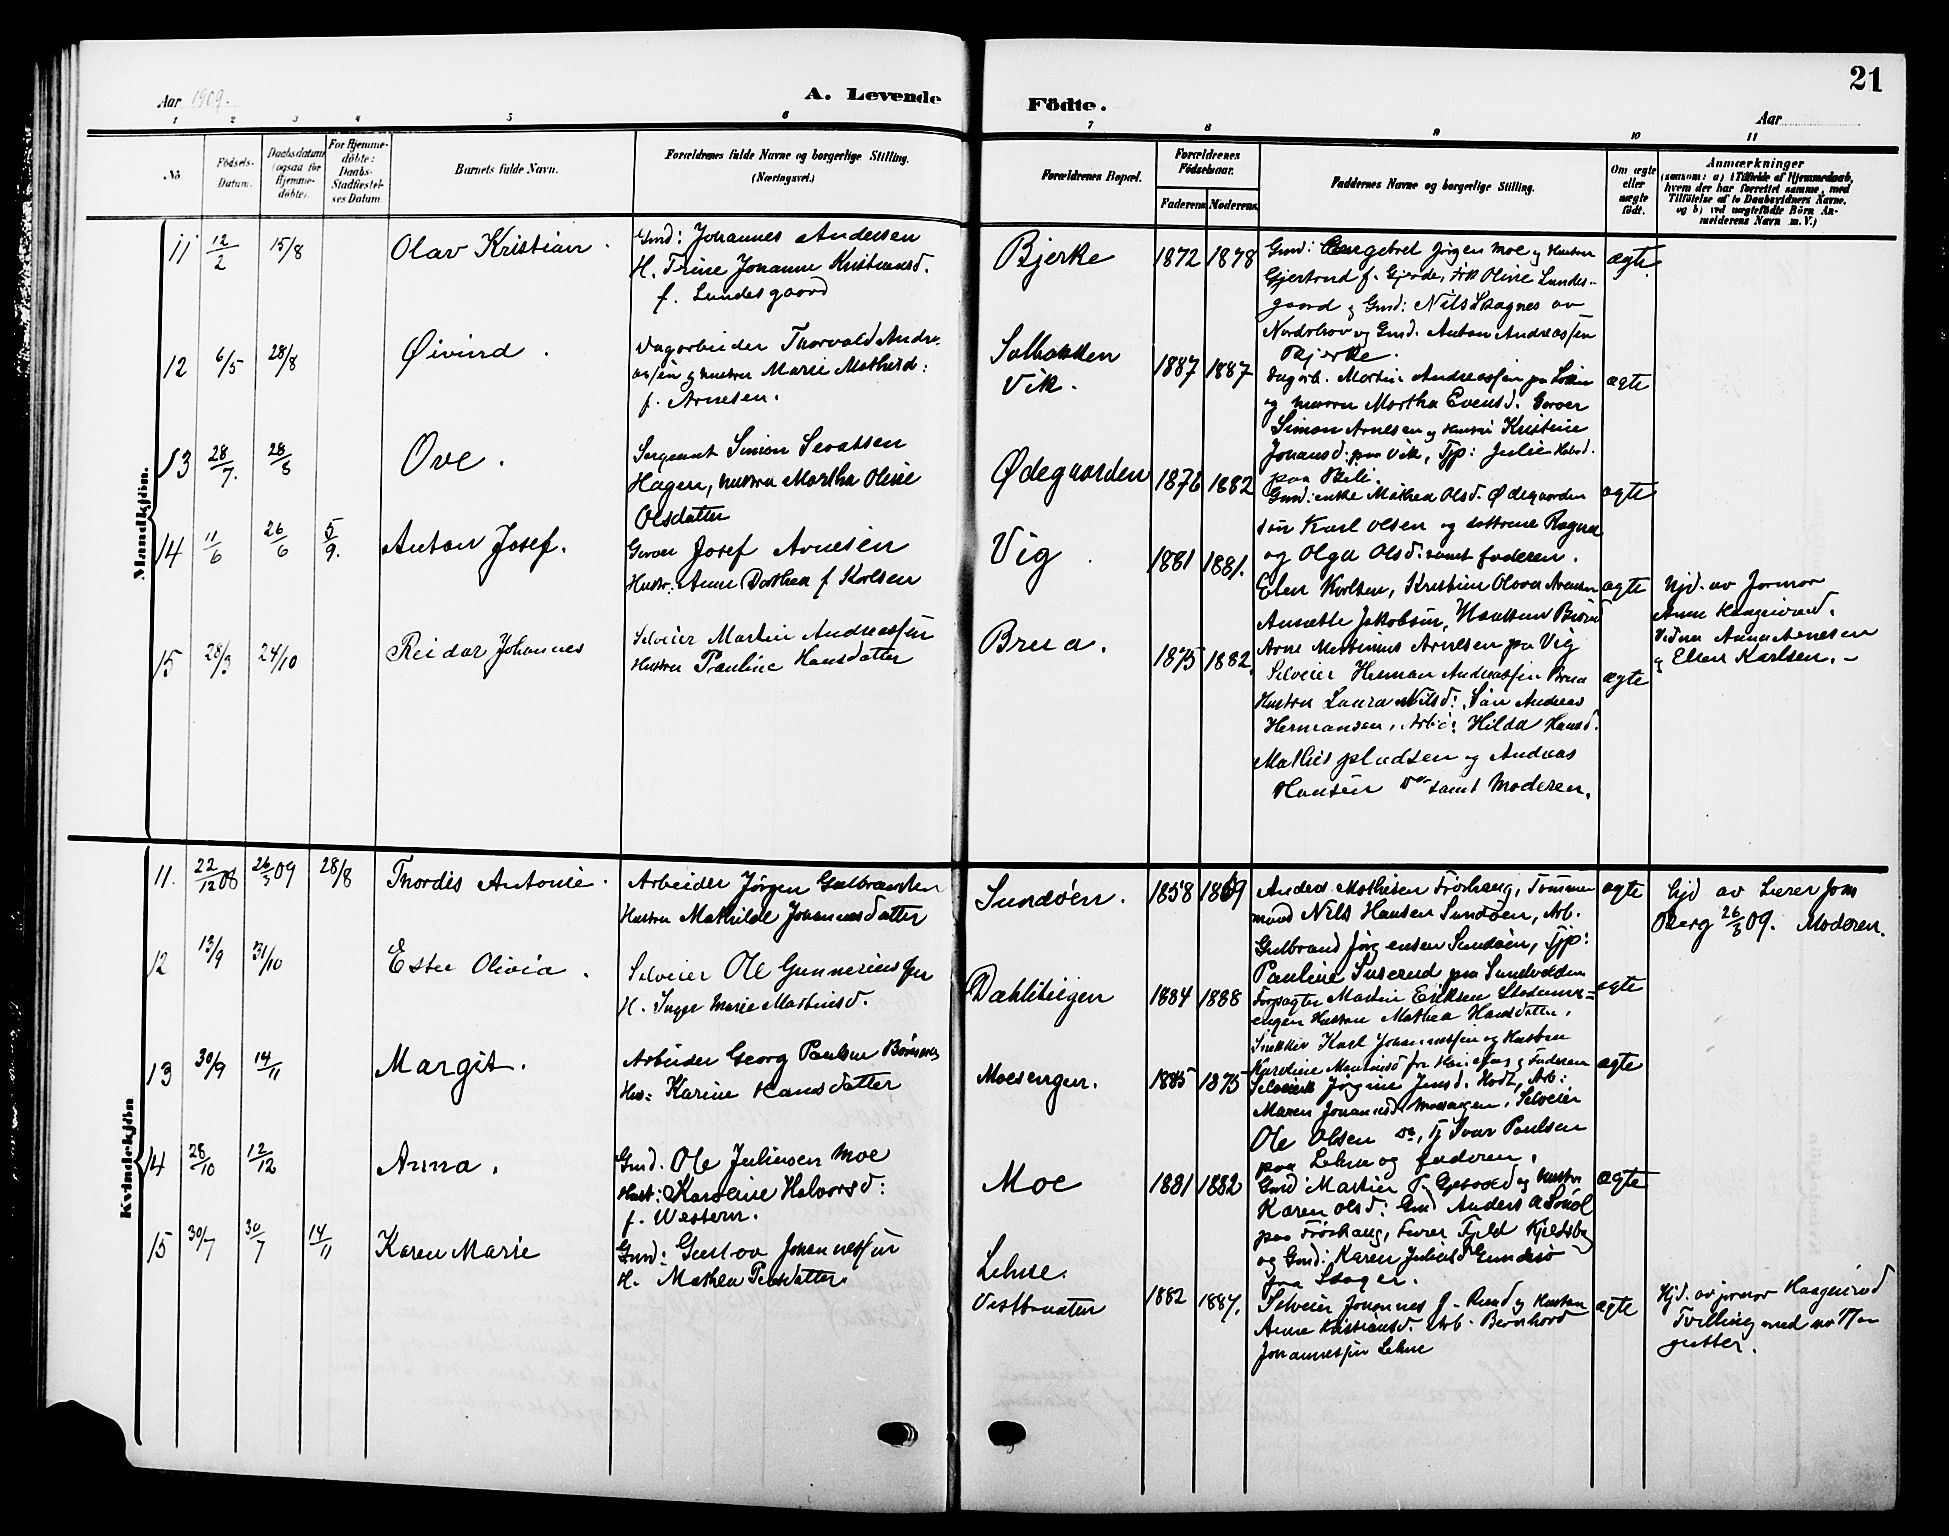 21
Aar 1909.
A. Levende
Födte.
Aar
1 2 3 4 5 6
7 8 9 10 11
No.
Födsels-Datum.
Daabsdatum (ogsaa for Hjemme-döbte).
For Hjemme-döbte: Daabs-Stadfæstel-ses Datum
Barnets fulde Navn.
Forældrenes fulde Navne og borgerlige Stilling. (Næringsvei.)
Forældrenes Bopæl.
Forældrenes Födselsaar.
Faderens. Moderens.
Faddernes Navne og borgerlige Stilling.
Om ægte eller uægte födt.
Anmærkninger
(saasom: a) i Tilfælde af Hjemmedaab,
hvem der har forrettet samme, med
Tilföielse af to Daabsvidners Navne,
og b) ved uægtefödte Börn An-
melderens Navn m. V.)
Mandkjön.
11 12/2 15/8 Olav Kristian.
Gmd: Johannes Andersen
H. Trine Johanne Kristiansd.
f. Lundesgaard
Bjerke 1872 1878
Gmd: Engebret Jørgen Moe og Hustru
Gjertrud f. Gjerde, Frk Oline Lundes-
gaard og Gmd: Nils Skagnes av
Norderhov og Gmd. Anton Andreassen
Bjerke.
ægte
12 6/5 28/8 Øivind.
Dagarbeider Thorvald Andre-
assen og Hustru Marie Mathisd:
f. Arnesen.
Solbakken
Vik.
1887 1887
Dagarb. Martin Andreassen
og Hustru Martha Evensd. Garver
Simon Arnesen og Hustru Kristine
Johansd. paa Vik, Tjp: Julie
paa Bili.
ægte
13 28/7. 28/8 Ove.
Sergeant Simon
Hagen, Hustru Martha Oline
Olsdatter
Ødegaarden 1876 1882
Gmd: enke Mathea Olsd. Ødegaarden
søn Karl Olsen og døttrene Ragna
og Olga Olsd. samt faderen.
ægte
14 11/6 26/6 5/9. Anton Josef.
Garver Josef Arnesen
Hustr: Anne Dorthea f Karlsen
Vig 1881 1881.
Elen Karlsen, Kristine Olava Arnesen
Annette Jakobsen,
Arne Martinius Arnesen paa Vig
ægte
Hjd. av Jormor
Anne Haagenrud.
Vidner Anna Arnesen
og Ellen Karlsen. -
15 28/3 24/10 Reidar Johannes
Selveier Martin Andreassen
Hustru Pauline Hansdatter
Brua. 1875 1882.
Selveier Herman Andreassen Brua
Hustru Laura Nilsd: Søn Andreas
Hermansen, Arb: Hilda Hansd.
Mathispladsen og Andreas
Hansen Do samt Moderen.
ægte
Kvindekjön
11. 22/12 08 26/3 09 28/8 Thordis Antonie.
Arbeider Jørgen Gulbrandsen
Hustru Mathilde Johannesdatter
Sundøen. 1858 1869
Anders Mathisen Frøshaug, Tømmer
mand Nils Hansen Sundøen, Arb.
Gulbrand Jørgensen Sundøen, Tjp:
Pauline
ægte
Hjd av Lærer Jons
Berg 26/3 09. Moderen.
12 13/9 31/10 Ester Olivia.
Selveier Ole Gunneriussen
H. Inger Marie Martinsd.
Dæhlibeigen 1884 1888
Forpagter Martin Eriksen
engen Hustru Mathea Hansdatter,
Snekker Karl Johannessen og Hustru
ægte
13 30/9 14/11 Margit.
Arbeider Georg Paulsen
Hus: Karine Hansdatter
Moesengen. 1885 1875
Jørgine Jensd.
Maren Johannesd. Moesengen, Selveier
Ole Olsen Do, Tj Ivar Paulsen
paa Lehne og faderen.
ægte
14 28/10 12/12 Anna.
Gmd. Ole Juliusen Moe
Hust: Karoline Halvorsd:
f. Western.
Moe 1881 1882
Gmd: Martin
Karen Olsd: Gmd Anders
paa Frøshaug,
og Gmd: Karen
ægte
15 30/7 30/7 14/11 Karen Marie
Gmd: Gustav Johannessen
H. Mathea Persdatter
Lehne.
1882 1884.
Selveier Johannes og Hustru
Anne Kristiansd. Arb. Bernhard
Johannessen Lehne
ægte
Hjd. av jormor Haagenrud
Tvilling med
gutter.